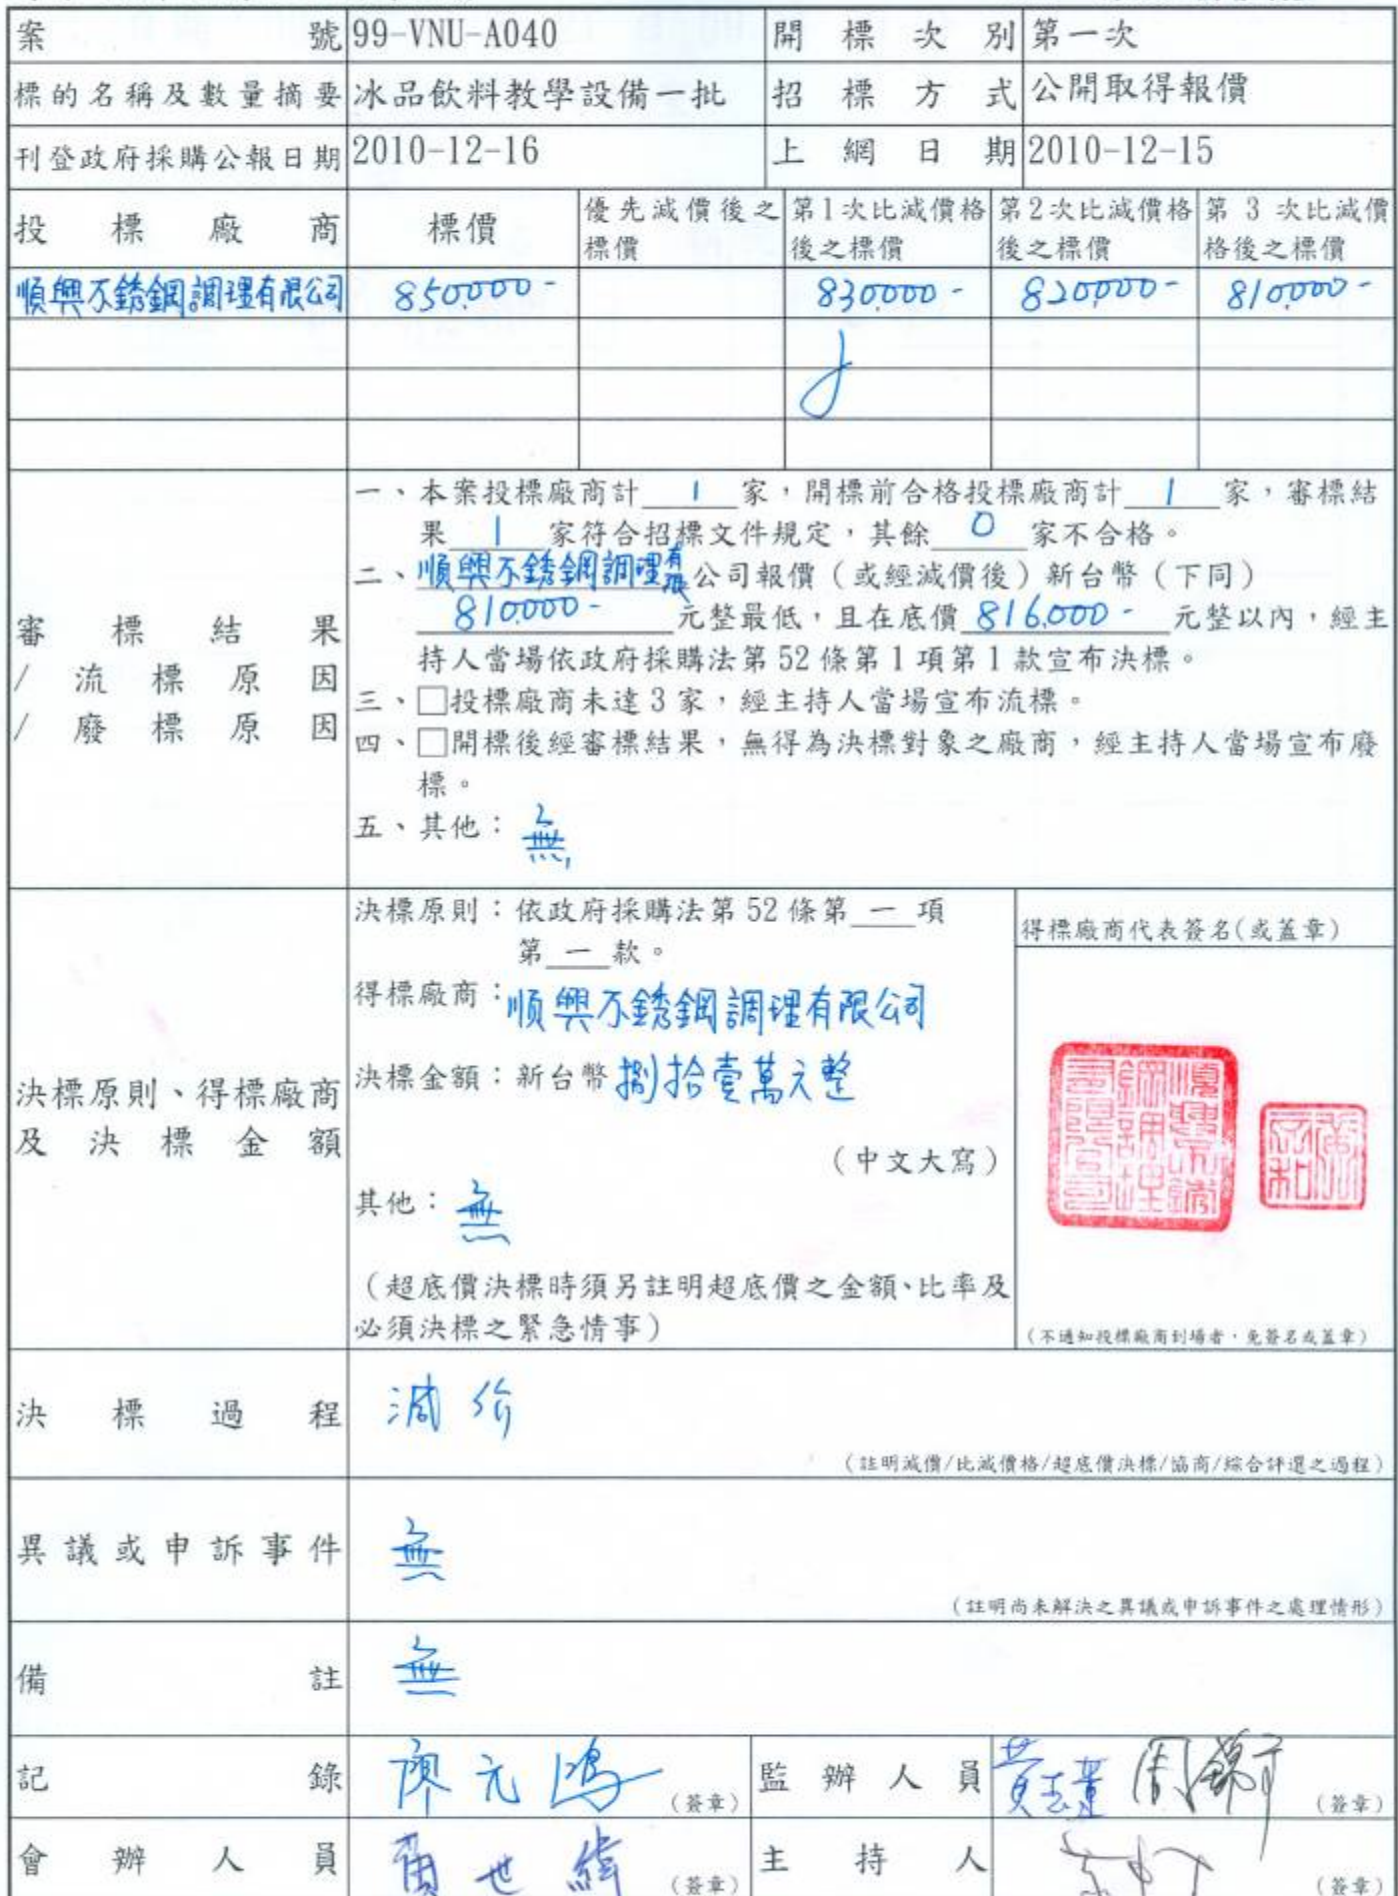 案號 99-VNU-A040 開標次別 第一次
標的名稱及數量摘要 冰品飲料教學設備一批 招標方式 公開取得報價
刊登政府採購公報日期 2010-12-16 上網日期 2010-12-15
投標廠商 標價 優先減價後之標價 第1次比減價格後之標價 第2次比減價格後之標價 第 3 次比減價格後之標價
順興不銹鋼調理有限公司 850,000- 830,000- 820,000- 810,000-
審標結果
/流標原因
/廢標原因
一、本案投標廠商計 1 家,開標前合格投標廠商計 1 家,審標結
果 1 家符合招標文件規定,其餘 0 家不合格。
二、順興不銹鋼調理有限公司報價(或經減價後)新台幣(下同)
810,000- 元整最低,且在底價 816,000- 元整以內,經主
持人當場依政府採購法第 52 條第 1 項第 1 款宣布決標。
三、□投標廠商未達 3 家,經主持人當場宣布流標。
四、□開標後經審標結果,無得為決標對象之廠商,經主持人當場宣布廢
標。
五、其他:無
決標原則、得標廠商
及決標金額
決標原則:依政府採購法第 52 條第 一 項
第 一 款。
得標廠商:順興不銹鋼調理有限公司
決標金額:新台幣捌拾壹萬元整
(中文大寫)
其他:無
(超底價決標時須另註明超底價之金額、比率及
必須決標之緊急情事)
得標廠商代表簽名(或蓋章)
(不通知投標廠商到場者,免簽名或蓋章)
決標過程 減價
(註明減價/比減價格/超底價決標/協商/綜合評選之過程)
異議或申訴事件 無
(註明尚未解決之異議或申訴事件之處理情形)
備註 無
記錄 廖元鴻 (簽章) 監辦人員 (簽章)
會辦人員 (簽章) 主持人 (簽章)